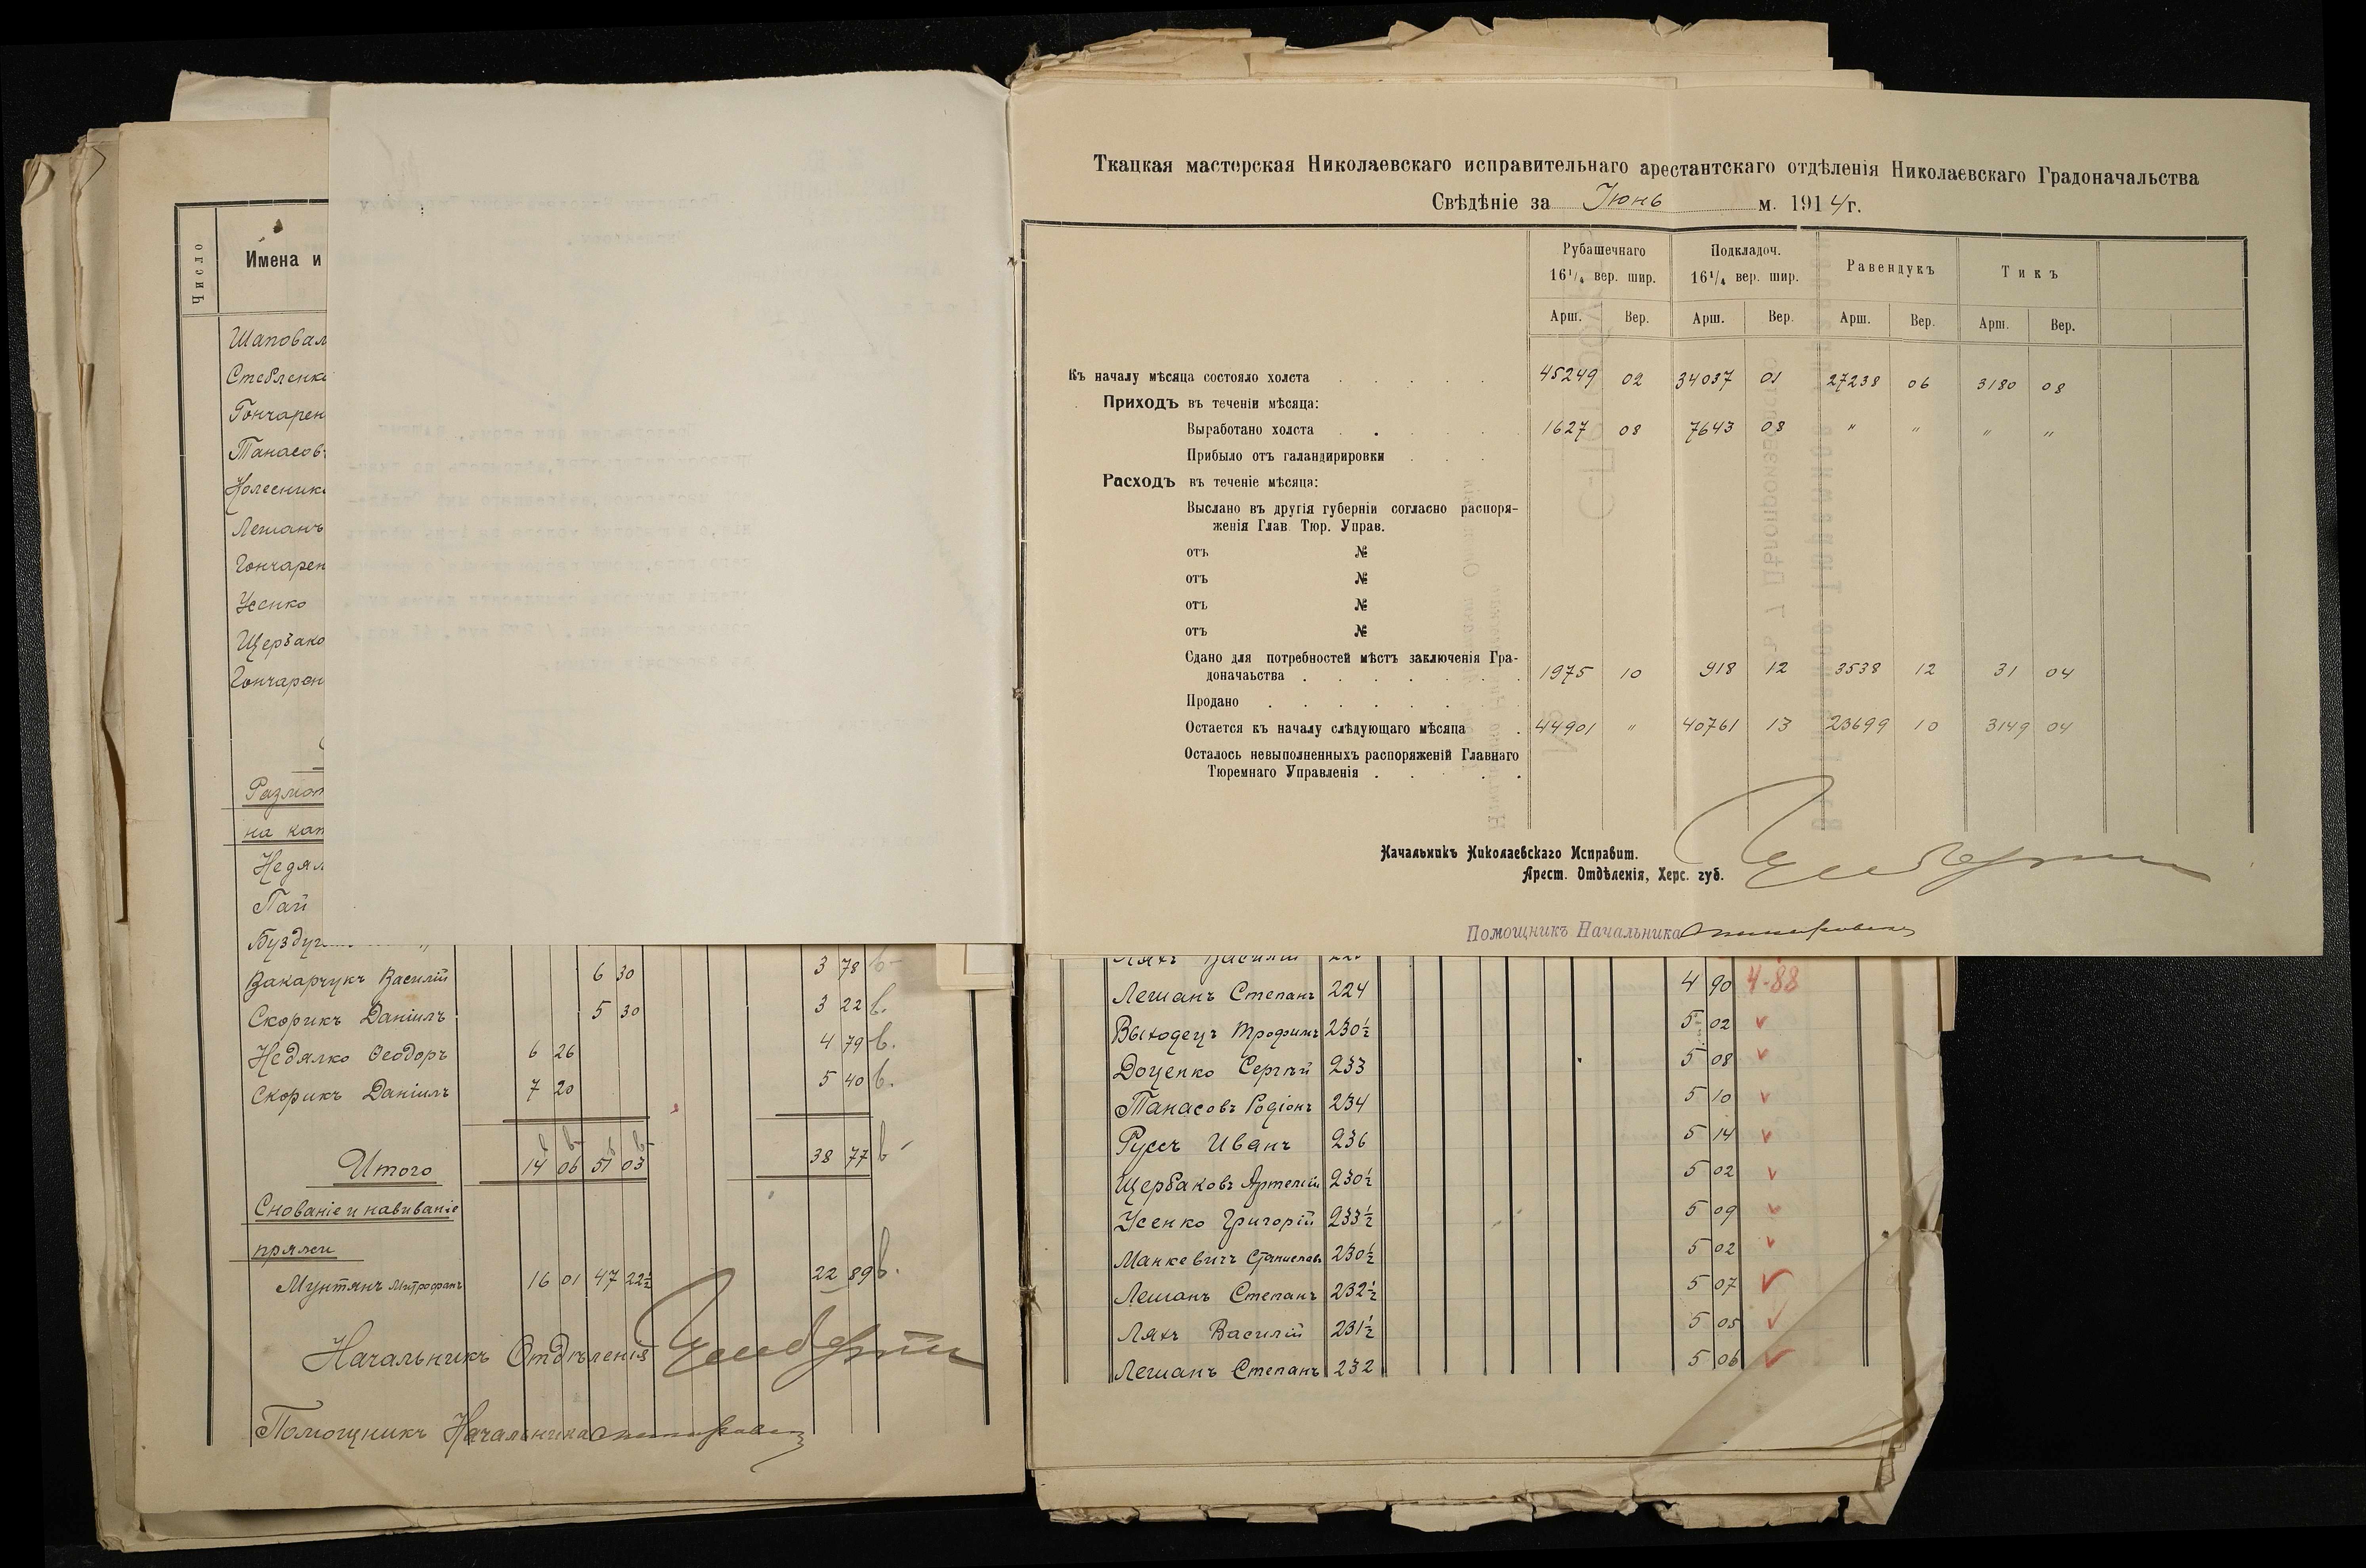 Число
Имена и
Шаповал
Стебленко
Гончарен
Танасовъ
Колеснико
Лешанъ
Гончарен
Усенко
Щербако
Гончарен
Размот
на кат
Недял
Пай
Буздуг
Вакарчукъ Василій 6 30 3 78 в
Скорикъ Даніилъ 5 30 3 22 в.
Недялко Ѳеодоръ 6 26 4 79 в.
Скорикъ Даніилъ 7 20 5 40 в.
Итого 14 06 51 03 38 77 в
Снованіе и навиваніе
пряжи
Мунтянъ Митрофанъ 16 01 47 22½ 22 89 в.
Начальникъ Отдѣленія
Помощникъ Начальника
Ткацкая мастерская Николаевскаго исправительнаго арестантскаго отдѣленія Николаевскаго Градоначальства
Свѣдѣніе за Іюнь м. 1914 г.
Рубашечнаго 16¼ вер. шир. Подкладоч. 16¼ вер. шир. Равендукъ Тикъ
Арш. Вер. Арш. Вер. Арш. Вер. Арш. Вер.
Къ началу мѣсяца состояло холста 45249 02 34037 01 27238 06 3180 08
Приходъ въ теченіи мѣсяца:
Выработано холста 1627 08 7643 08 " " " "
Прибыло отъ галандирировки
Расходъ въ теченіе мѣсяца:
Выслано въ другія губерніи согласно распоря-
женія Глав. Тюр. Управ.
отъ №
отъ №
отъ №
отъ №
Сдано для потребностей мѣстъ заключенія Гра-
доначаьства 1975 10 918 12 3538 12 31 04
Продано
Остается къ началу слѣдующаго мѣсяца 44901 " 40761 13 23699 10 3149 04
Осталось невыполненныхъ распоряженій Главнаго
Тюремнаго Управленія
Начальникъ Николаевскаго Исправит.
Арест. Отдѣленія, Херс. губ.
Помощникъ Начальника
Лешанъ Степанъ 224 4 90 4-88
Выходецъ Трофимъ 230½ 5 02
Доценко Сергѣй 233 5 08
Танасовъ Родіонъ 234 5 10
Руссъ Иванъ 236 5 14
Щербаковъ Артемій 230½ 5 02
Усенко Григорій 233½ 5 09
Манкевичъ Станиславъ 230½ 5 02
Лешанъ Степанъ 232½ 5 07
Ляхъ Василій 231½ 5 05
Лешанъ Степанъ 232 5 06